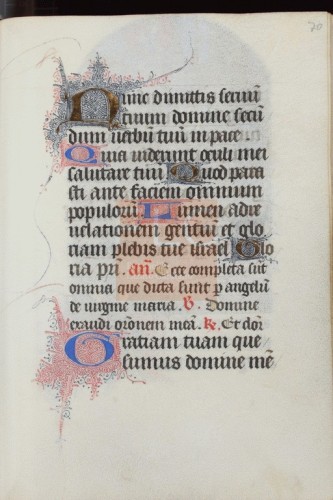 70
Nunc dimittis servū
tuum domine secū
dum verbū tuū in pace.
Quia viderunt oculi mei
salutare tuū Quod para
sti ante faciem omnium
populorū. Lumen ad re
velationem gentiū et glo
riam plebis tue israel Glo
ria pr̄i. an̄. Ecce completa sūt
omnia que dicta sunt p̄ angelū
de virgine maria. V̄. Domine
exaudi or̄onem meā. R̄. Et clō
Gratiam tuam que
sumus domine mē